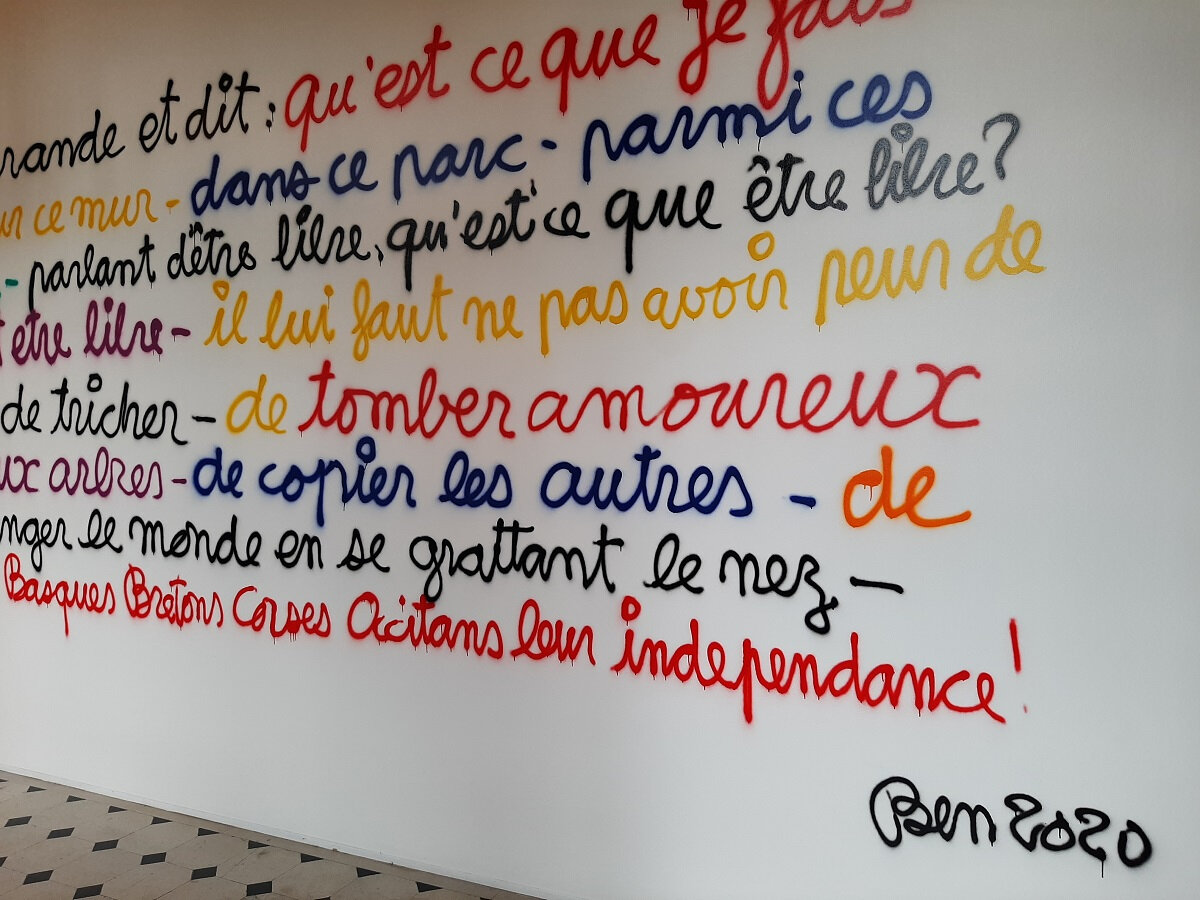 rande et dit : qu'est ce que je fais
ur ce mur - dans ce parc - parmi ces
- parlant d'être libre, qu'est ce que être libre?
etre libre - il lui faut ne pas avoir peur de
de tricher - de tomber amoureux
ux arbres - de copier les autres - de
nger le monde en se grattant le nez -
Basques Bretons Corses Occitans leur independance!
Ben 2020